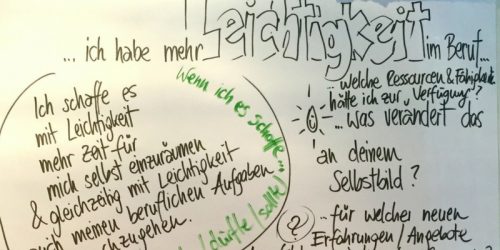 ... ich habe mehr Leichtigkeit im Beruf...
Ich schaffe es
mit Leichtigkeit
mehr Zeit für
mich selbst einzuräumen
& gleichzeitig mit Leichtigkeit
meinen beruflichen Aufgaben
nachzugehen.
Wenn ich es schaffe...
/dürfte/sollte/
... welche Ressourcen & Fähigkeite
hätte ich zur "Verfügung"?
... was verändert das
an deinem
Selbstbild?
? ... für welcher neuen
Erfahrungen/Angebote